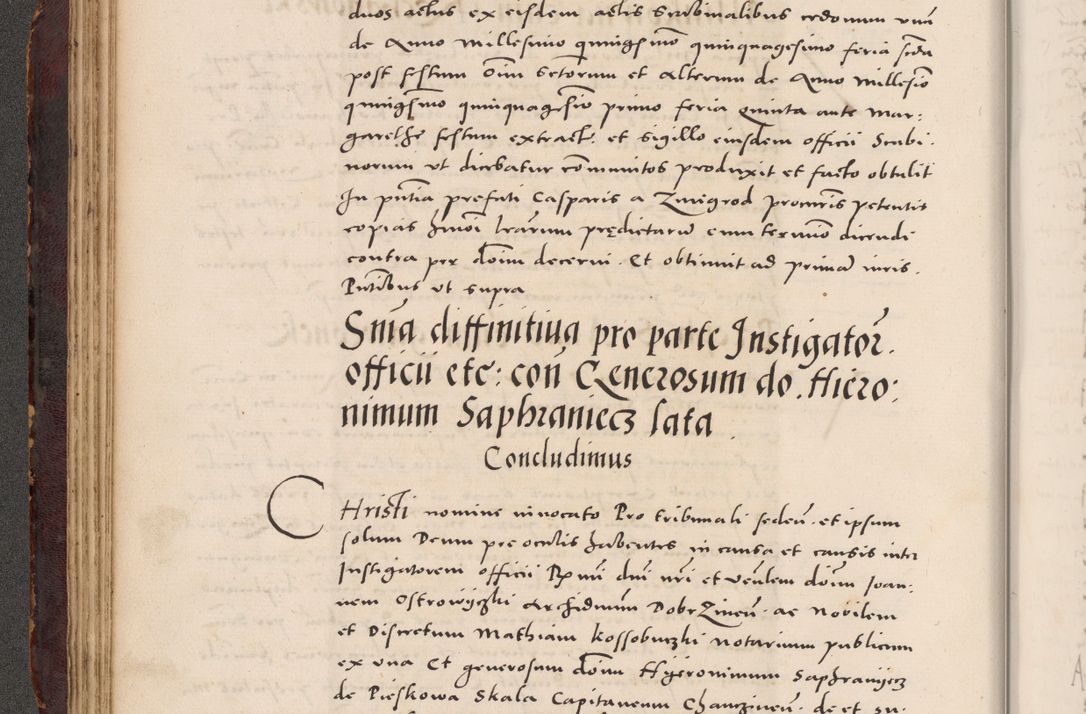 duos actus ex eisdem actis Scabinalibus cedonum unū
de Anno Millesimo quingēsimo quinquagesimo feria scda
post festum Oīm Sctorum et alterum de Anno Millesīo
quingēsmo quinquagesīo primo feria quinta ante Mar:
garethe festum extract. et sigillo eiusdem officii Scabi.
norum ut dicebatur cōmunitos produxit et facto obtulit
In pñtia prefati Casparis a Zmigrod procuris petentis
copias hmōi lrarum prędictarū cum termino dicendi
contra per dōim decerni. Et obtinuit ad primā iuris.
Pñtibus ut supra
Snīa diffinitiua pro parte Instigator.
officii etc: con Generosum do. Hiero:
nimum Saphraniecz lata.
Concludimus
CHristi nomine inuocato Pro tribunali seden. et ipsum
solum Deum pre oculis habentes in causa et causis inter
Instigatorem officii Rmi dni nri et Venlem doim Joan:
nem Ostrowyczki Archidnum Dobrzinen. ac Nobilem
et Discretum Mathiam Kossobuczki notarium publicum
ex una Et generosum dōim Hyeronimum Saphranyecz
de Pieskowa Skala Capitaneum Chanczinen. de et su.